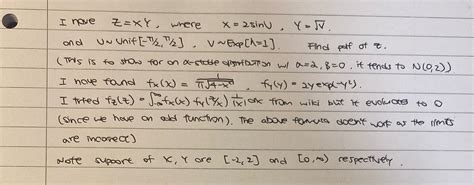 I have Z = XY, where X = 2sinU, Y = √V.
and U ~ Unif[-π/2, π/2], V ~ Exp[λ=1]. Find pdf of Z.
(This is to show for an α-stable distribution w/ α=2, β=0, it tends to N(0,2))
I have found fx(x) = 1/(π√(4-x²)), fy(y) = 2y exp(-y²).
I tried fz(z) = ∫_{-∞}^{∞} fx(x) fy(z/x) 1/|x| dx from wiki but it evaluates to 0
(since we have an odd function). The above formula doesn't work as the limits
are incorrect)
Note support of X, Y are [-2,2] and [0,∞) respectively.